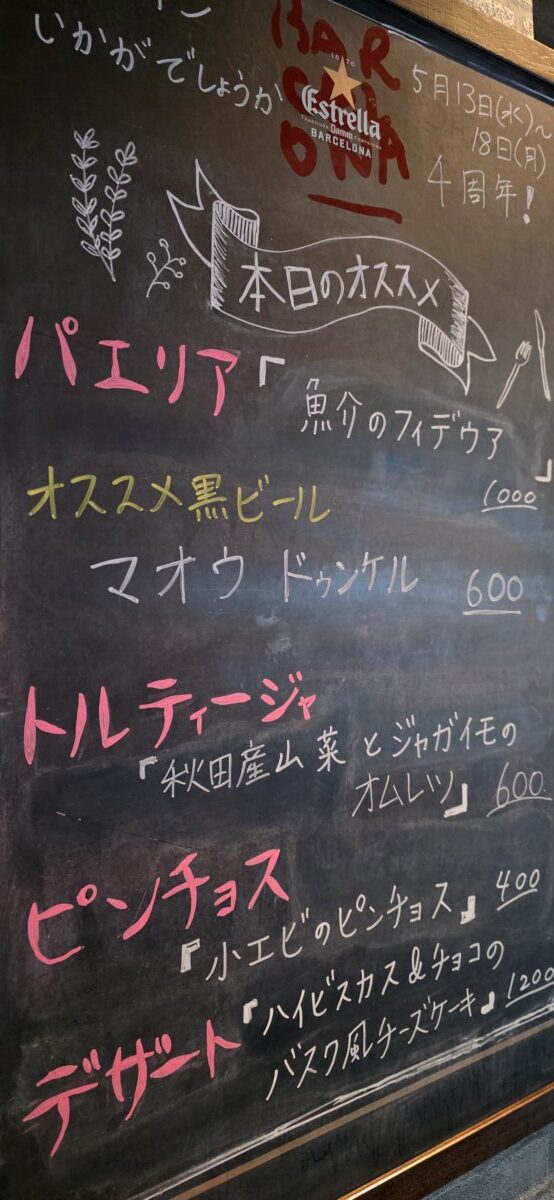 いかがでしょうか
BAR
CEL
ONA
1876
Estrella
Damm
BARCELONA
5月13日(水)〜
18日(月)
4周年!
本日のオススメ
パエリア「魚介のフィデウア」
1000
オススメ黒ビール
マオウ ドゥンケル 600
トルティージャ
「秋田産山菜とジャガイモの
オムレツ」 600
ピンチョス
「小エビのピンチョス」 400
デザート
「ハイビスカス&チョコの
バスク風チーズケーキ」 1200